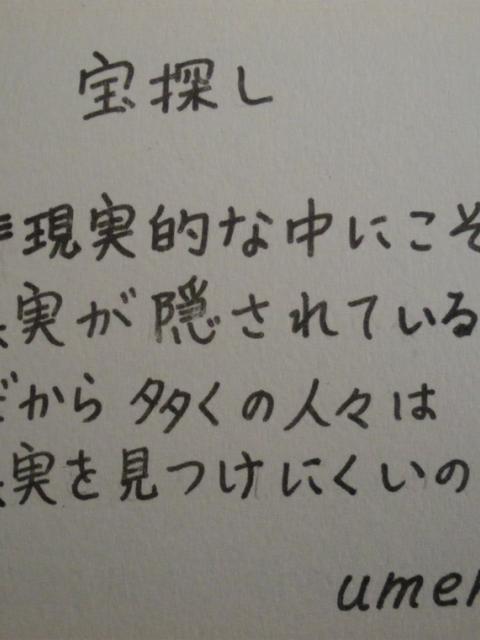 宝探し
非現実的な中にこそ
真実が隠されている
だから多くの人々は
真実を見つけにくいの
umer